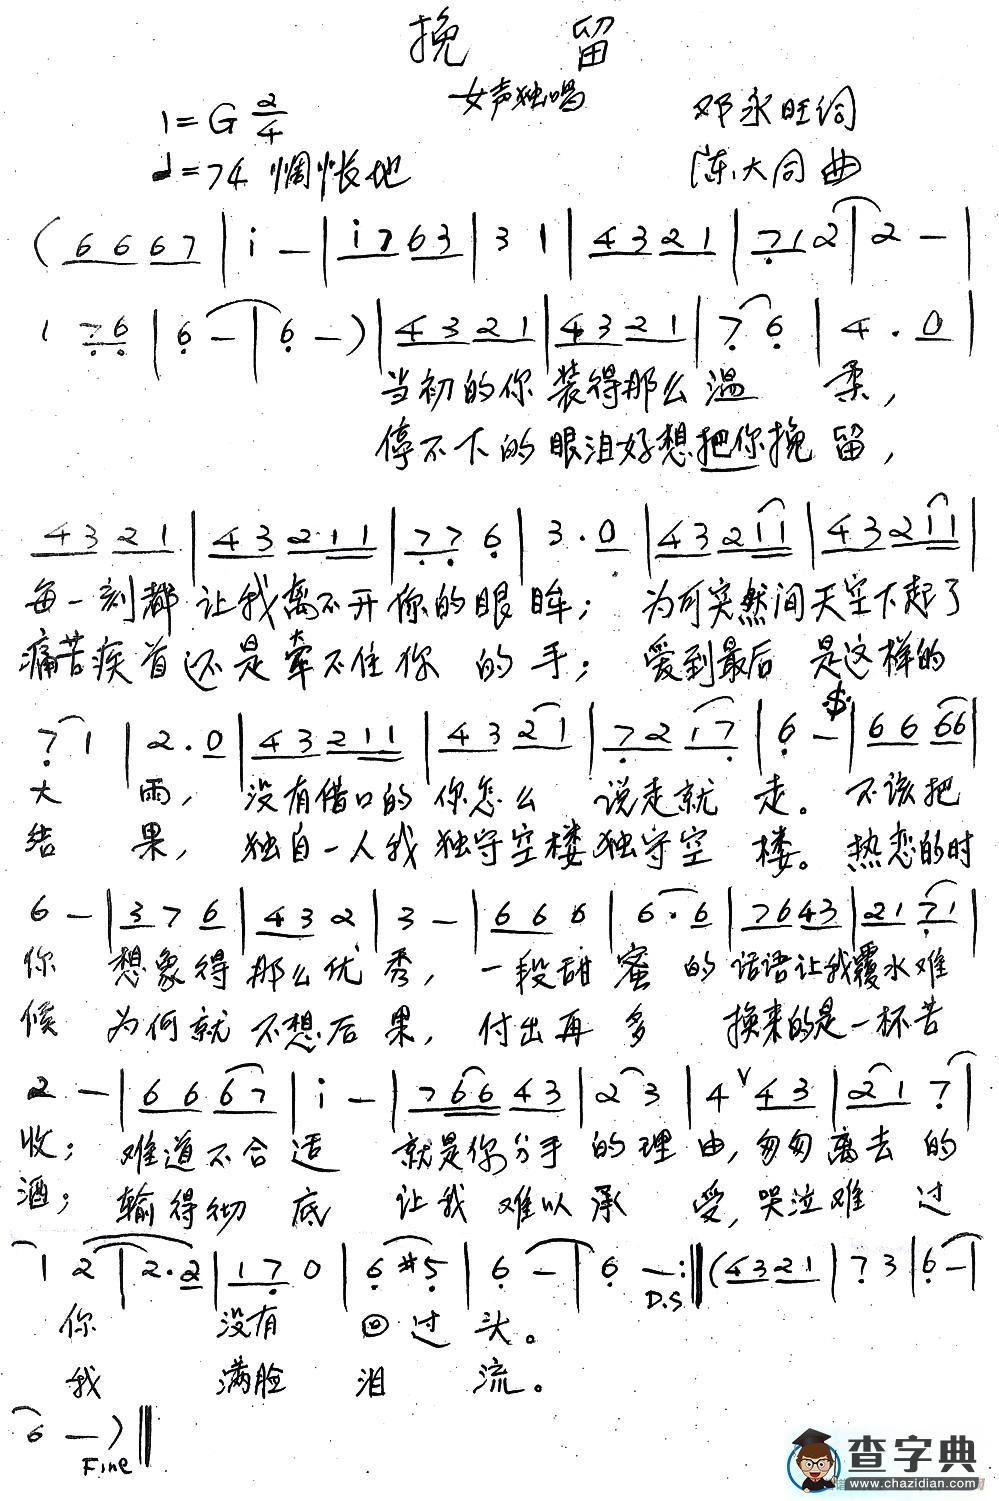 挽 留
女声独唱
1=G 2/4
邓永旺词
♩=74 惆怅地
陈大同曲
(6 6 6 7 | i — | i 7 6 3 | 3 1 | 4 3 2 1 | 7 1 2 | 2 — |
1 7 6 | 6 — | 6 — ) | 4 3 2 1 | 4 3 2 1 | 7 6 | 4 . 0 |
当初的你 装得那么 温 柔,
停不下的 眼泪好想 把你挽 留,
4 3 2 1 | 4 3 2 · 1 1 | 7 7 6 | 3 . 0 | 4 3 2 1 1 | 4 3 2 1 1 |
每一刻都 让我离不开 你的眼 眸; 为何突然间 天空下起了
痛苦疾首 还是牵不住 你 的 手; 爱到最后 是这样的
7 1 | 2 . 0 | 4 3 2 1 1 | 4 3 2 1 | 7 2 1 7 | 6 — | 6 6 6 6 |
大 雨, 没有借口的 你怎么 说走就 走。 不该把
结 果, 独自一人我 独守空楼 独守空 楼。 热恋的时
6 — | 3 7 6 | 4 3 2 | 3 — | 6 6 6 | 6 . 6 | 7 6 4 3 | 2 1 7 1 |
你 想象得 那么优 秀, 一段甜 蜜 的 话语让我 覆水难
候 为何就 不想后 果, 付出再 多 换来的是 一杯苦
2 — | 6 6 6 7 | i — | 7 6 6 4 3 | 2 3 | 4 ∨ 4 3 | 2 1 7 |
收; 难道不合 适 就是你分手 的 理 由, 匆匆 离去 的
酒; 输得彻 底 让我 难以 承 受, 哭泣 难 过
1 2 | 2 . 2 | 1 7 0 | 6 #5 | 6 — | 6 — :‖ (4 3 2 1 | 7 3 | 6 — |
D.S
你 没有 回 过 头。
我 满脸 泪 流。
6 — ) ‖
Fine
查字典
www.chazidian.com